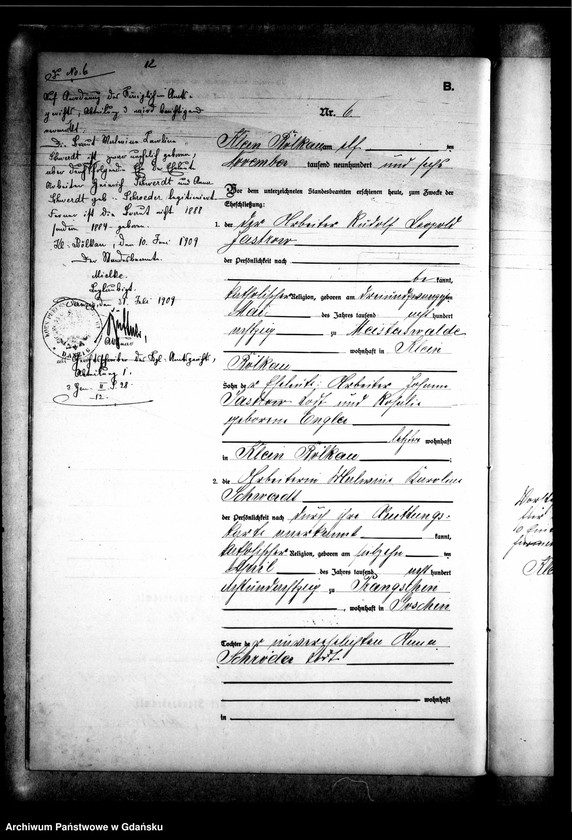 Zu No. 6
Auf Anordnung des Königlichen Amts-
gerichts, Abteilung 3 wird berichtigend
vermerkt:
Die Braut Malwine Karoline
Schwerdt ist zwar unehelich geboren,
aber durch Ehe der Eheleute
Arbeiter Heinrich Schwerdt und Anna
Schwerdt geb. Schroeder legitimiert
Ferner ist die Braut nicht 1888
sondern 1884 geboren.
Kl. Bölkau, den 10. 1909
Der Standesbeamte.
Mielke.
Beglaubigt.
Danzig, den 31. Juli 1909
Gerichtsschreiber des Kgl. Amtsgerichts,
Abteilung 1.
B.
Nr. 6
Klein Bölkau am elf ten
November tausend neunhundert und sechs
Vor dem unterzeichneten Standesbeamten erschienen heute, zum Zwecke der
Eheschließung:
1. der Arbeiter Rudolf Leopold
Jastrow
der Persönlichkeit nach
be kannt,
katholischer Religion, geboren am dreiundzwanzigsten
Mai des Jahres tausend acht hundert
achtzig zu Meisterswalde
, wohnhaft in Klein
Bölkau
Sohn der Eheleute: Arbeiter Johann
Jastrow todt und Rosalie
geborene Engler
letztere wohnhaft
in Klein Bölkau ;
2. die Arbeiterin Malwine Karoline
Schwerdt
der Persönlichkeit nach durch ihre Quittungs-
karte anerkannt kannt,
katholischer Religion, geboren am ten
April des Jahres tausend acht hundert
achtundachtzig zu Rangschin
, wohnhaft in Goschin
Tochter der unverehelichten Anna
Schröder todt
wohnhaft
in
Archiwum Państwowe w Gdańsku